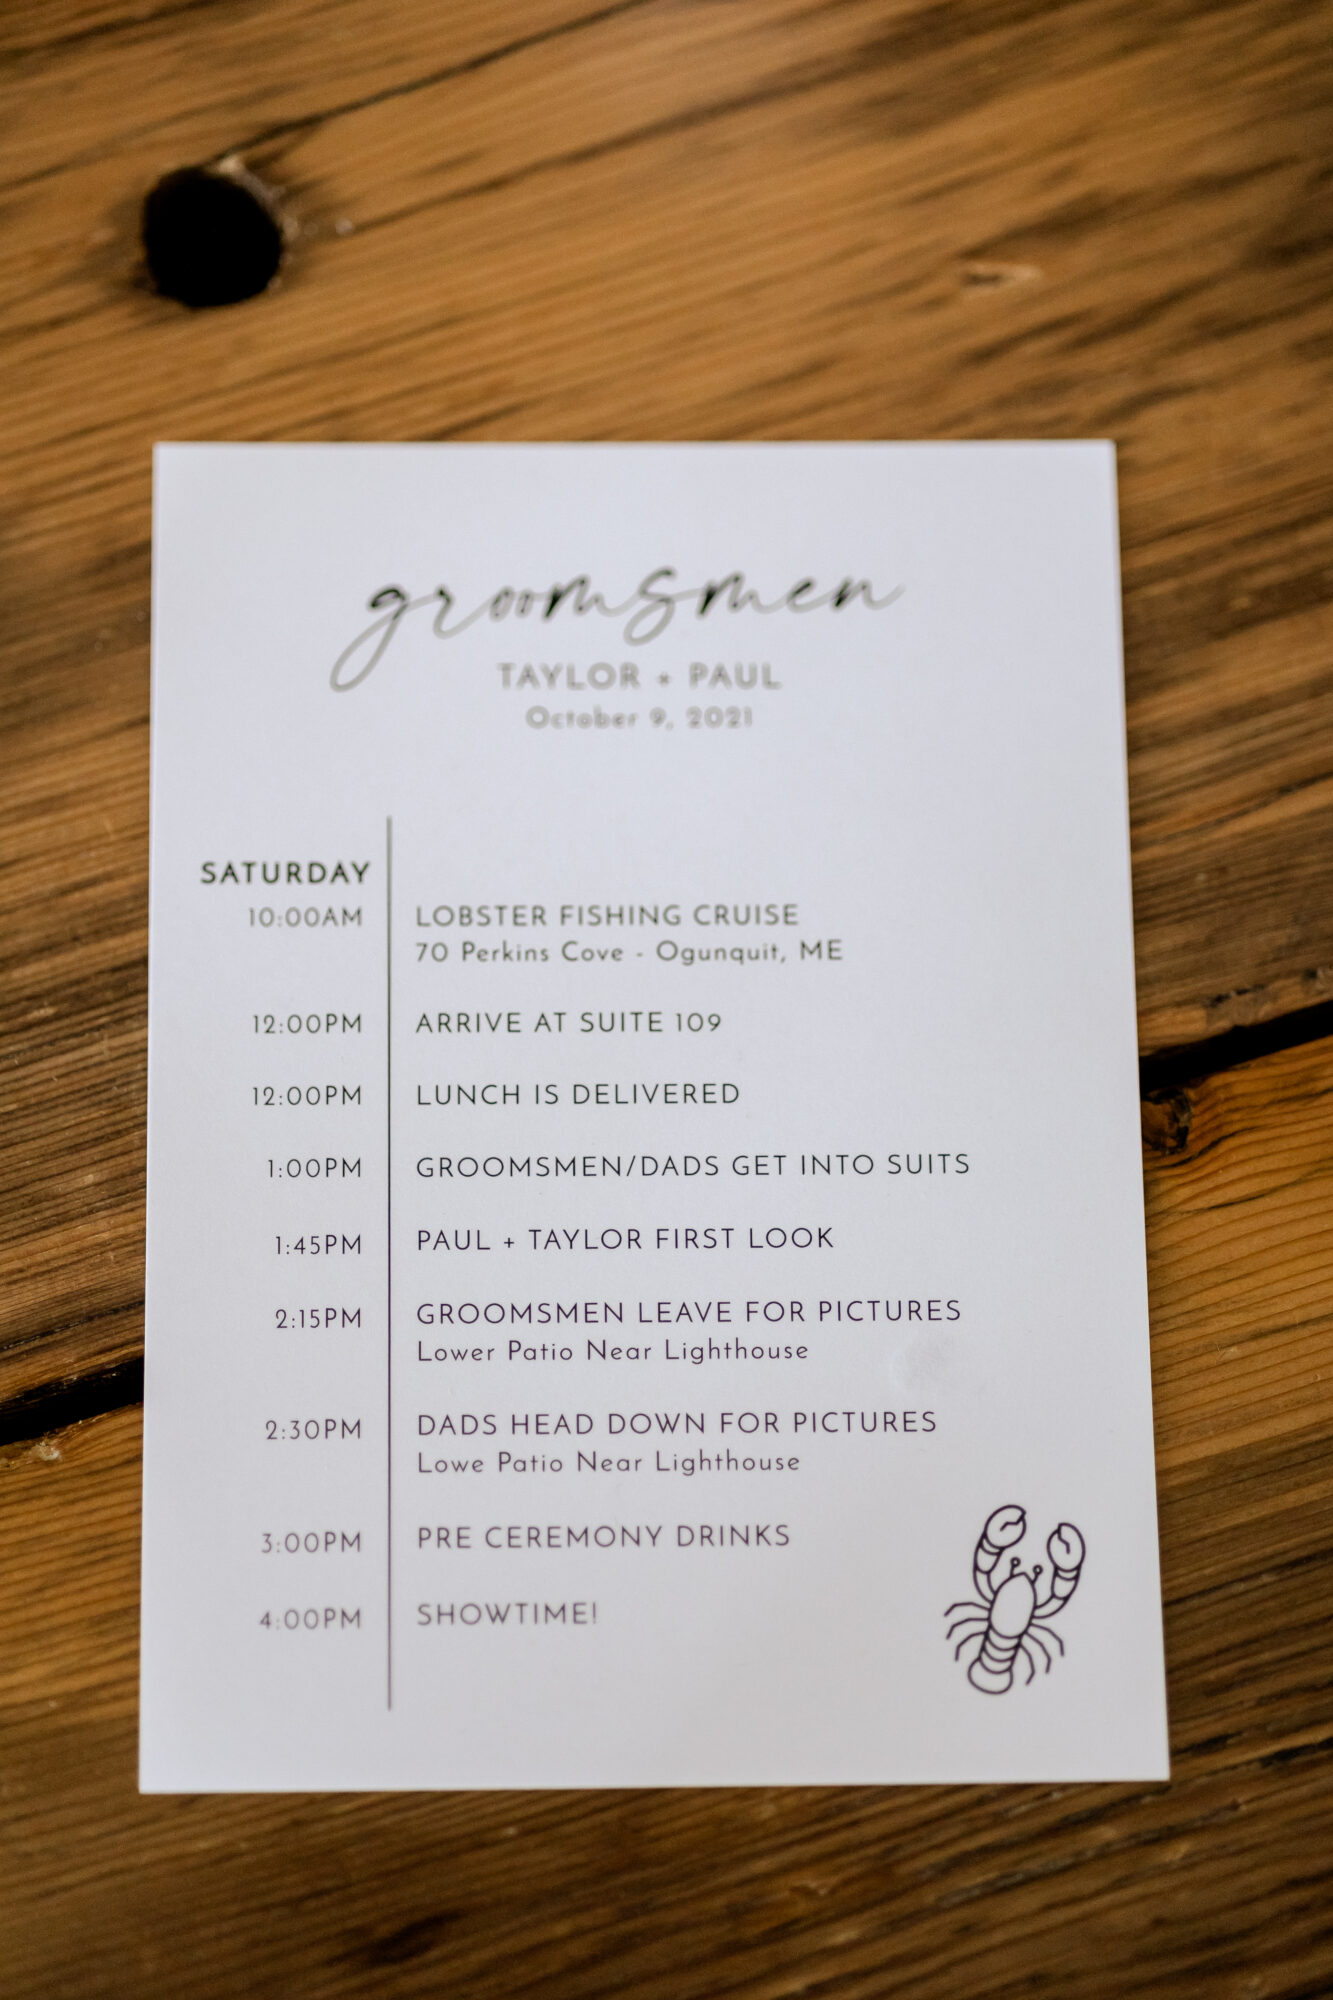 groomsmen
TAYLOR + PAUL
October 9, 2021
SATURDAY
10:00AM LOBSTER FISHING CRUISE
70 Perkins Cove - Ogunquit, ME
12:00PM ARRIVE AT SUITE 109
12:00PM LUNCH IS DELIVERED
1:00PM GROOMSMEN/DADS GET INTO SUITS
1:45PM PAUL + TAYLOR FIRST LOOK
2:15PM GROOMSMEN LEAVE FOR PICTURES
Lower Patio Near Lighthouse
2:30PM DADS HEAD DOWN FOR PICTURES
Lowe Patio Near Lighthouse
3:00PM PRE CEREMONY DRINKS
4:00PM SHOWTIME!